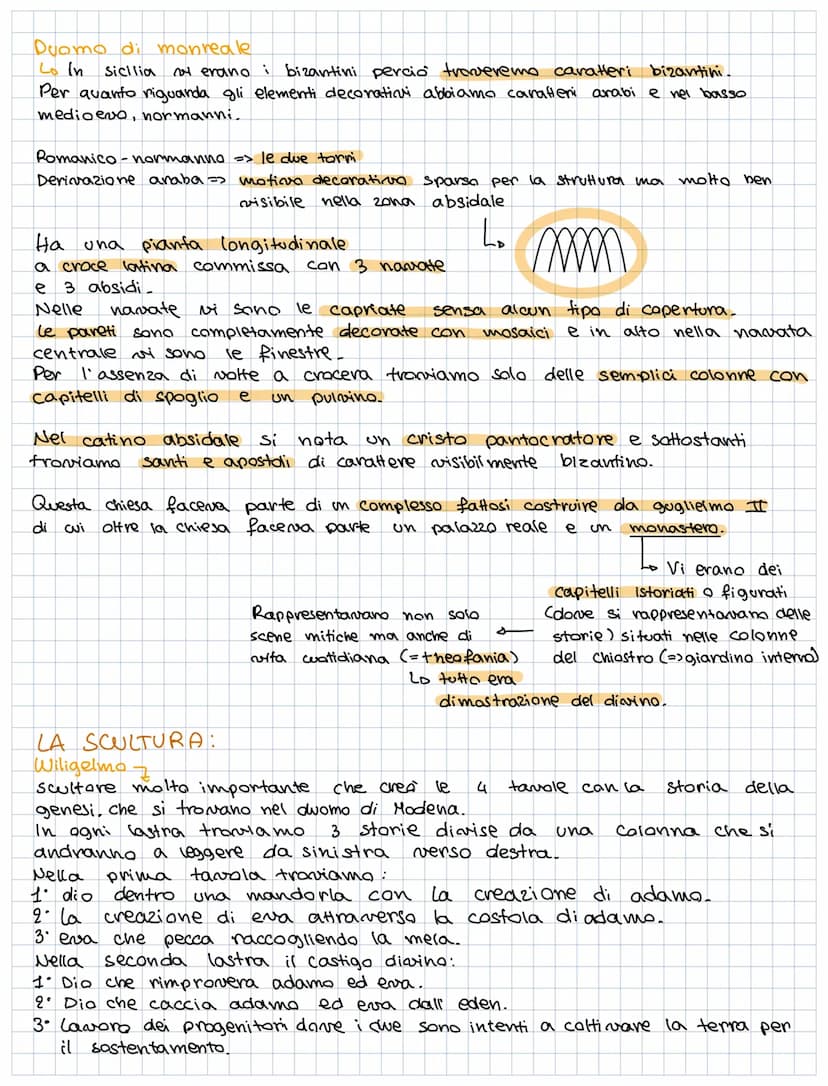 Duomo di monreale
↳ In sicilia vi erano i bizantini perciò troveremo caratteri bizantini.
Per quanto riguarda gli elementi decorativi abbiamo caratteri arabi e nel basso
medioevo, normanni.
Romanico-normanno => le due torri
Derivazione araba => motivo decorativo sparso per la struttura ma molto ben
visibile nella zona absidale
Ha una pianta longitudinale
a croce latina commissa con 3 navate
e 3 absidi.
Nelle navate vi sono le capriate sensa alcun tipo di copertura.
Le pareti sono completamente decorate con mosaici e in alto nella navata
centrale vi sono le finestre.
Per l'assenza di volte a crocera troviamo solo delle semplici colonne con
capitelli di spoglio e un pulvino.
Nel catino absidale si nota un cristo pantocratore e sottostanti
troviamo santi e apostoli di carattere visibilmente bizantino.
Questa chiesa faceva parte di un complesso fattosi costruire da guglielmo II
di cui oltre la chiesa faceva parte un palazzo reale e un monastero.
↳ Vi erano dei
capitelli istoriati o figurati
(dove si rappresentavano delle
storie) situati nelle colonne
del chiostro (=> giardino interno)
Rappresentavano non solo
scene mitiche ma anche di
vita cuotidiana (= theofania)
↳ tutto era
dimostrazione del divino.
LA SCULTURA:
Wiligelmo
scultore molto importante che creò le 4 tavole con la storia della
genesi, che si trovano nel duomo di Modena.
In ogni lastra troviamo 3 storie divise da una colonna che si
andranno a leggere da sinistra verso destra.
Nella prima tavola troviamo:
1° dio dentro una mandorla con la creazione di adamo.
2° la creazione di eva attraverso la costola di adamo.
3° eva che pecca raccogliendo la mela.
Nella seconda lastra il castigo divino:
1° Dio che rimprovera adamo ed eva.
2° Dio che caccia adamo ed eva dall'eden.
3° Lavoro dei progenitori dove i due sono intenti a coltivare la terra per
il sostentamento.